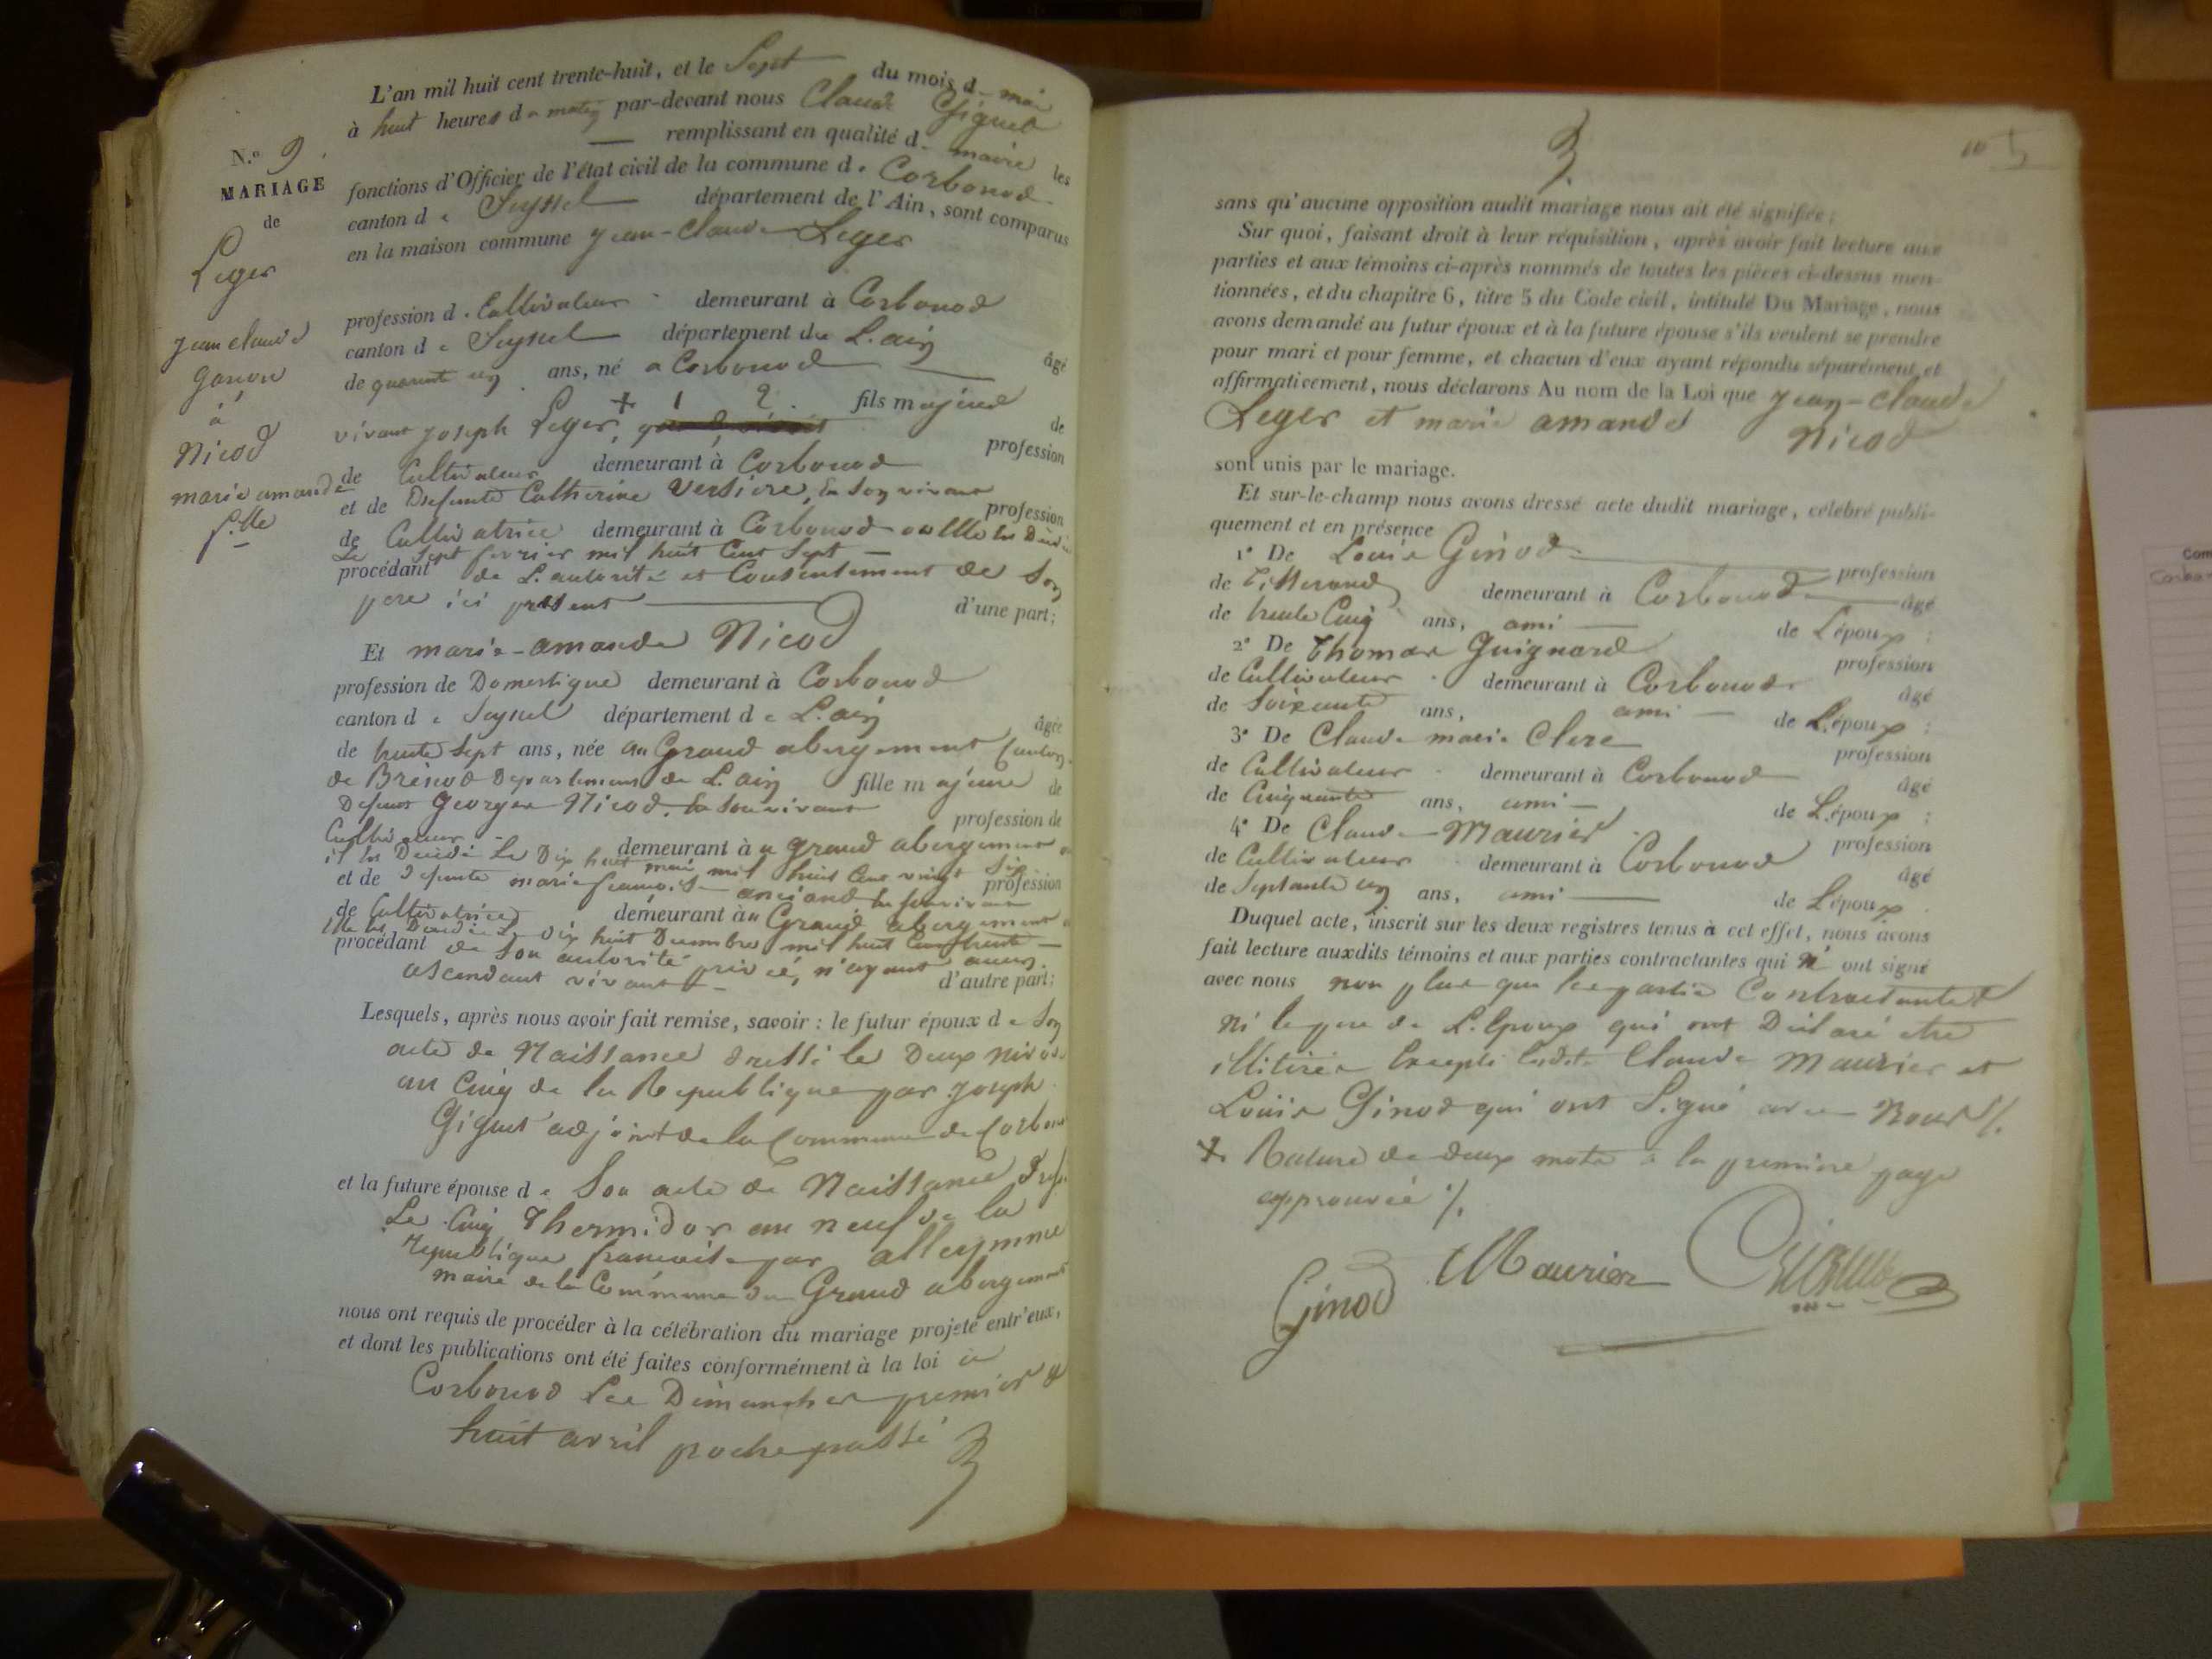 N.º 9
MARIAGE
de
Leger
jean claude
garçon
à
Nicod
marie amande
f.lle
L'an mil huit cent trente-huit, et le Sept du mois d mai
à huit heures du matin par-devant nous Claude Giguet
remplissant en qualité de maire les
fonctions d'Officier de l'état civil de la commune de Corbonod
canton de Seyssel département de l'Ain, sont comparus
en la maison commune jean-Claude Leger
profession de Cultivateur demeurant à Corbonod
canton de Seyssel département de L'ain âgé
de quarante un ans, né a Corbonod
+ 1 2 fils majeur de
vivant joseph Leger,
profession de Cultivateur demeurant à Corbonod
et de Defunte Catherine Versiere, En son vivant profession
de Cultivatrice demeurant à Corbonod ou Elle Est Décédée
Le Sept fevrier mil huit Cent Sept
procédant de L'autorité et Consentement de Son
pere ici présent d'une part;
Et marie-amande Nicod
profession de Domestique demeurant à Corbonod
canton de Seyssel département de L'ain âgée
de trente sept ans, née au Grand abergement Canton
de Brénod Departement de L'ain fille majeure de
Defunt George Nicod, En Son vivant profession de
Cultivateur demeurant à u grand abergement ou
il Est Décédé Le Dix huit mai mil huit Cent vingt Six
et de Defunte marie françoise ancians En son vivant profession
de Cultivatrice demeurant au Grand abergement ou
Elle Est Décédée Le Dix huit Decembre mil huit Cent trente
procédant de Son autorité privée, n'ayant aucun
ascendant vivant d'autre part:
Lesquels, après nous avoir fait remise, savoir : le futur époux de Son
acte de Naissance dressé le Deux nivose
an Cinq de la Republique par joseph
Giguet adjoint de la Commune de Corbonod
et la future épouse de Son acte de Naissance Dressé
Le Cinq Thermidor an neuf de la
republique francaise par alleymme
maire de la Commune du Grand abergement
nous ont requis de procéder à la célébration du mariage projeté entr'eux,
et dont les publications ont été faites conformément à la loi à
Corbonod Les Dimanches premier et
huit avril proche passé
sans qu'aucune opposition audit mariage nous ait été signifiée;
Sur quoi, faisant droit à leur réquisition, après avoir fait lecture aux
parties et aux témoins ci-après nommés de toutes les pièces ci-dessus men-
tionnées, et du chapitre 6, titre 5 du Code civil, intitulé Du Mariage, nous
avons demandé au futur époux et à la future épouse s'ils veulent se prendre
pour mari et pour femme, et chacun d'eux ayant répondu séparément et
affirmativement, nous déclarons Au nom de la Loi que jean-Claude
Leger et marie amande Nicod
sont unis par le mariage.
Et sur-le-champ nous avons dressé acte dudit mariage, célébré publi-
quement et en présence
1º De Louis Ginod profession
de Tisserand demeurant à Corbonod âgé
de trente Cinq ans, ami de L'époux ;
2º De Thomas Guignard profession
de Cultivateur demeurant à Corbonod âgé
de Soixante ans, ami de L'époux ;
3º De Claude marie Clerc profession
de Cultivateur demeurant à Corbonod âgé
de Cinquante ans, ami de L'époux ;
4º De Claude Maurier profession
de Cultivateur demeurant à Corbonod âgé
de Septante un ans, ami de L'époux.
Duquel acte, inscrit sur les deux registres tenus à cet effet, nous avons
fait lecture auxdits témoins et aux parties contractantes qui n' ont signé
avec nous non plus que les parties Contractantes
ni le pere de L'Epoux qui ont Déclaré être
illitirés Excepté lesdits Claude Maurier et
Louis Ginod qui ont Signé avec Nous /.
+ Rature de deux mots à la premiere page
approuvée /.
Ginod Maurier Giguet